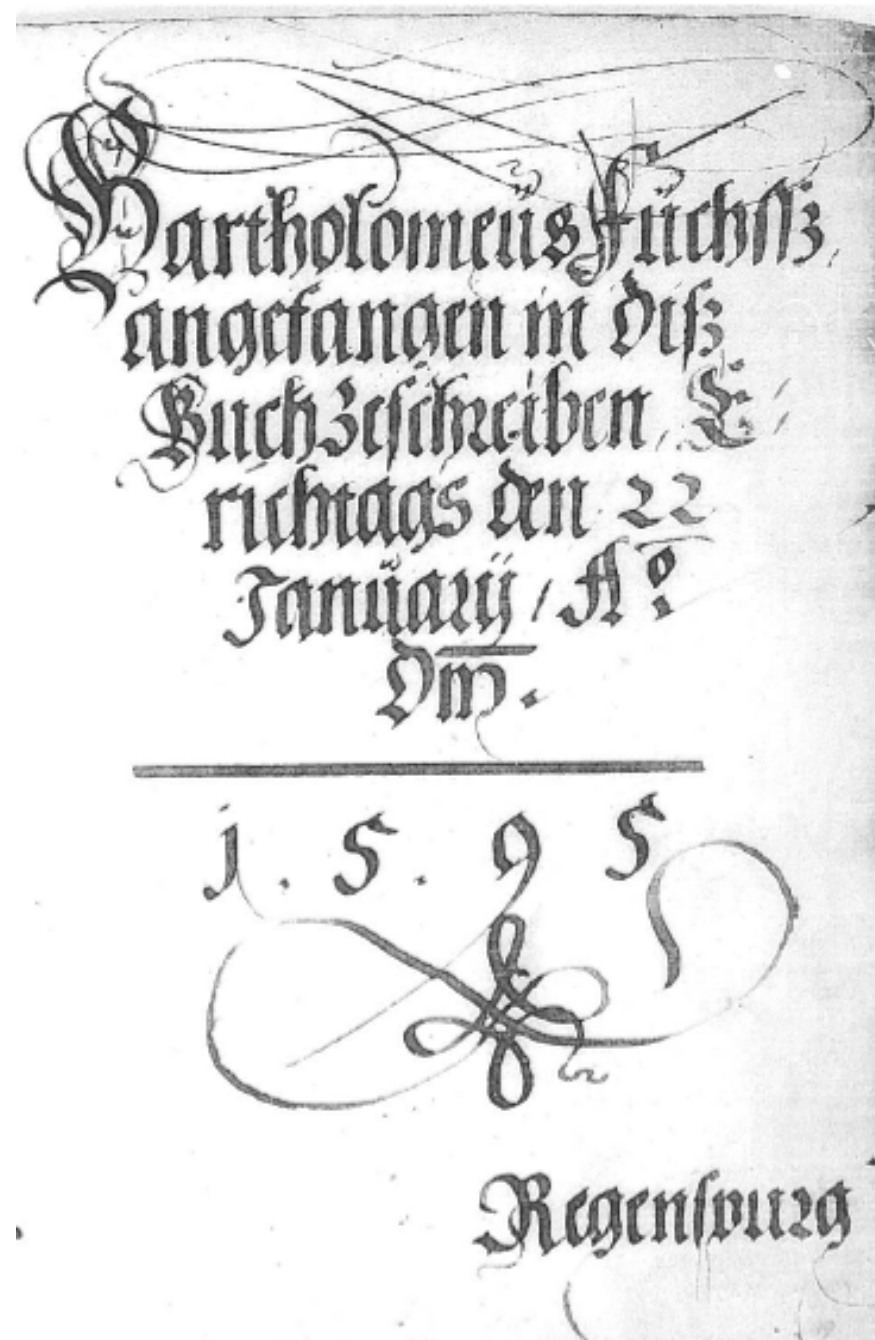 Bartholomeüs Füchssz,
angefangen in disz
Buch Zeschreiben, E,
richtags den 22
Januarÿ / A°
Dm̅.
1.5.95
Regenspurg